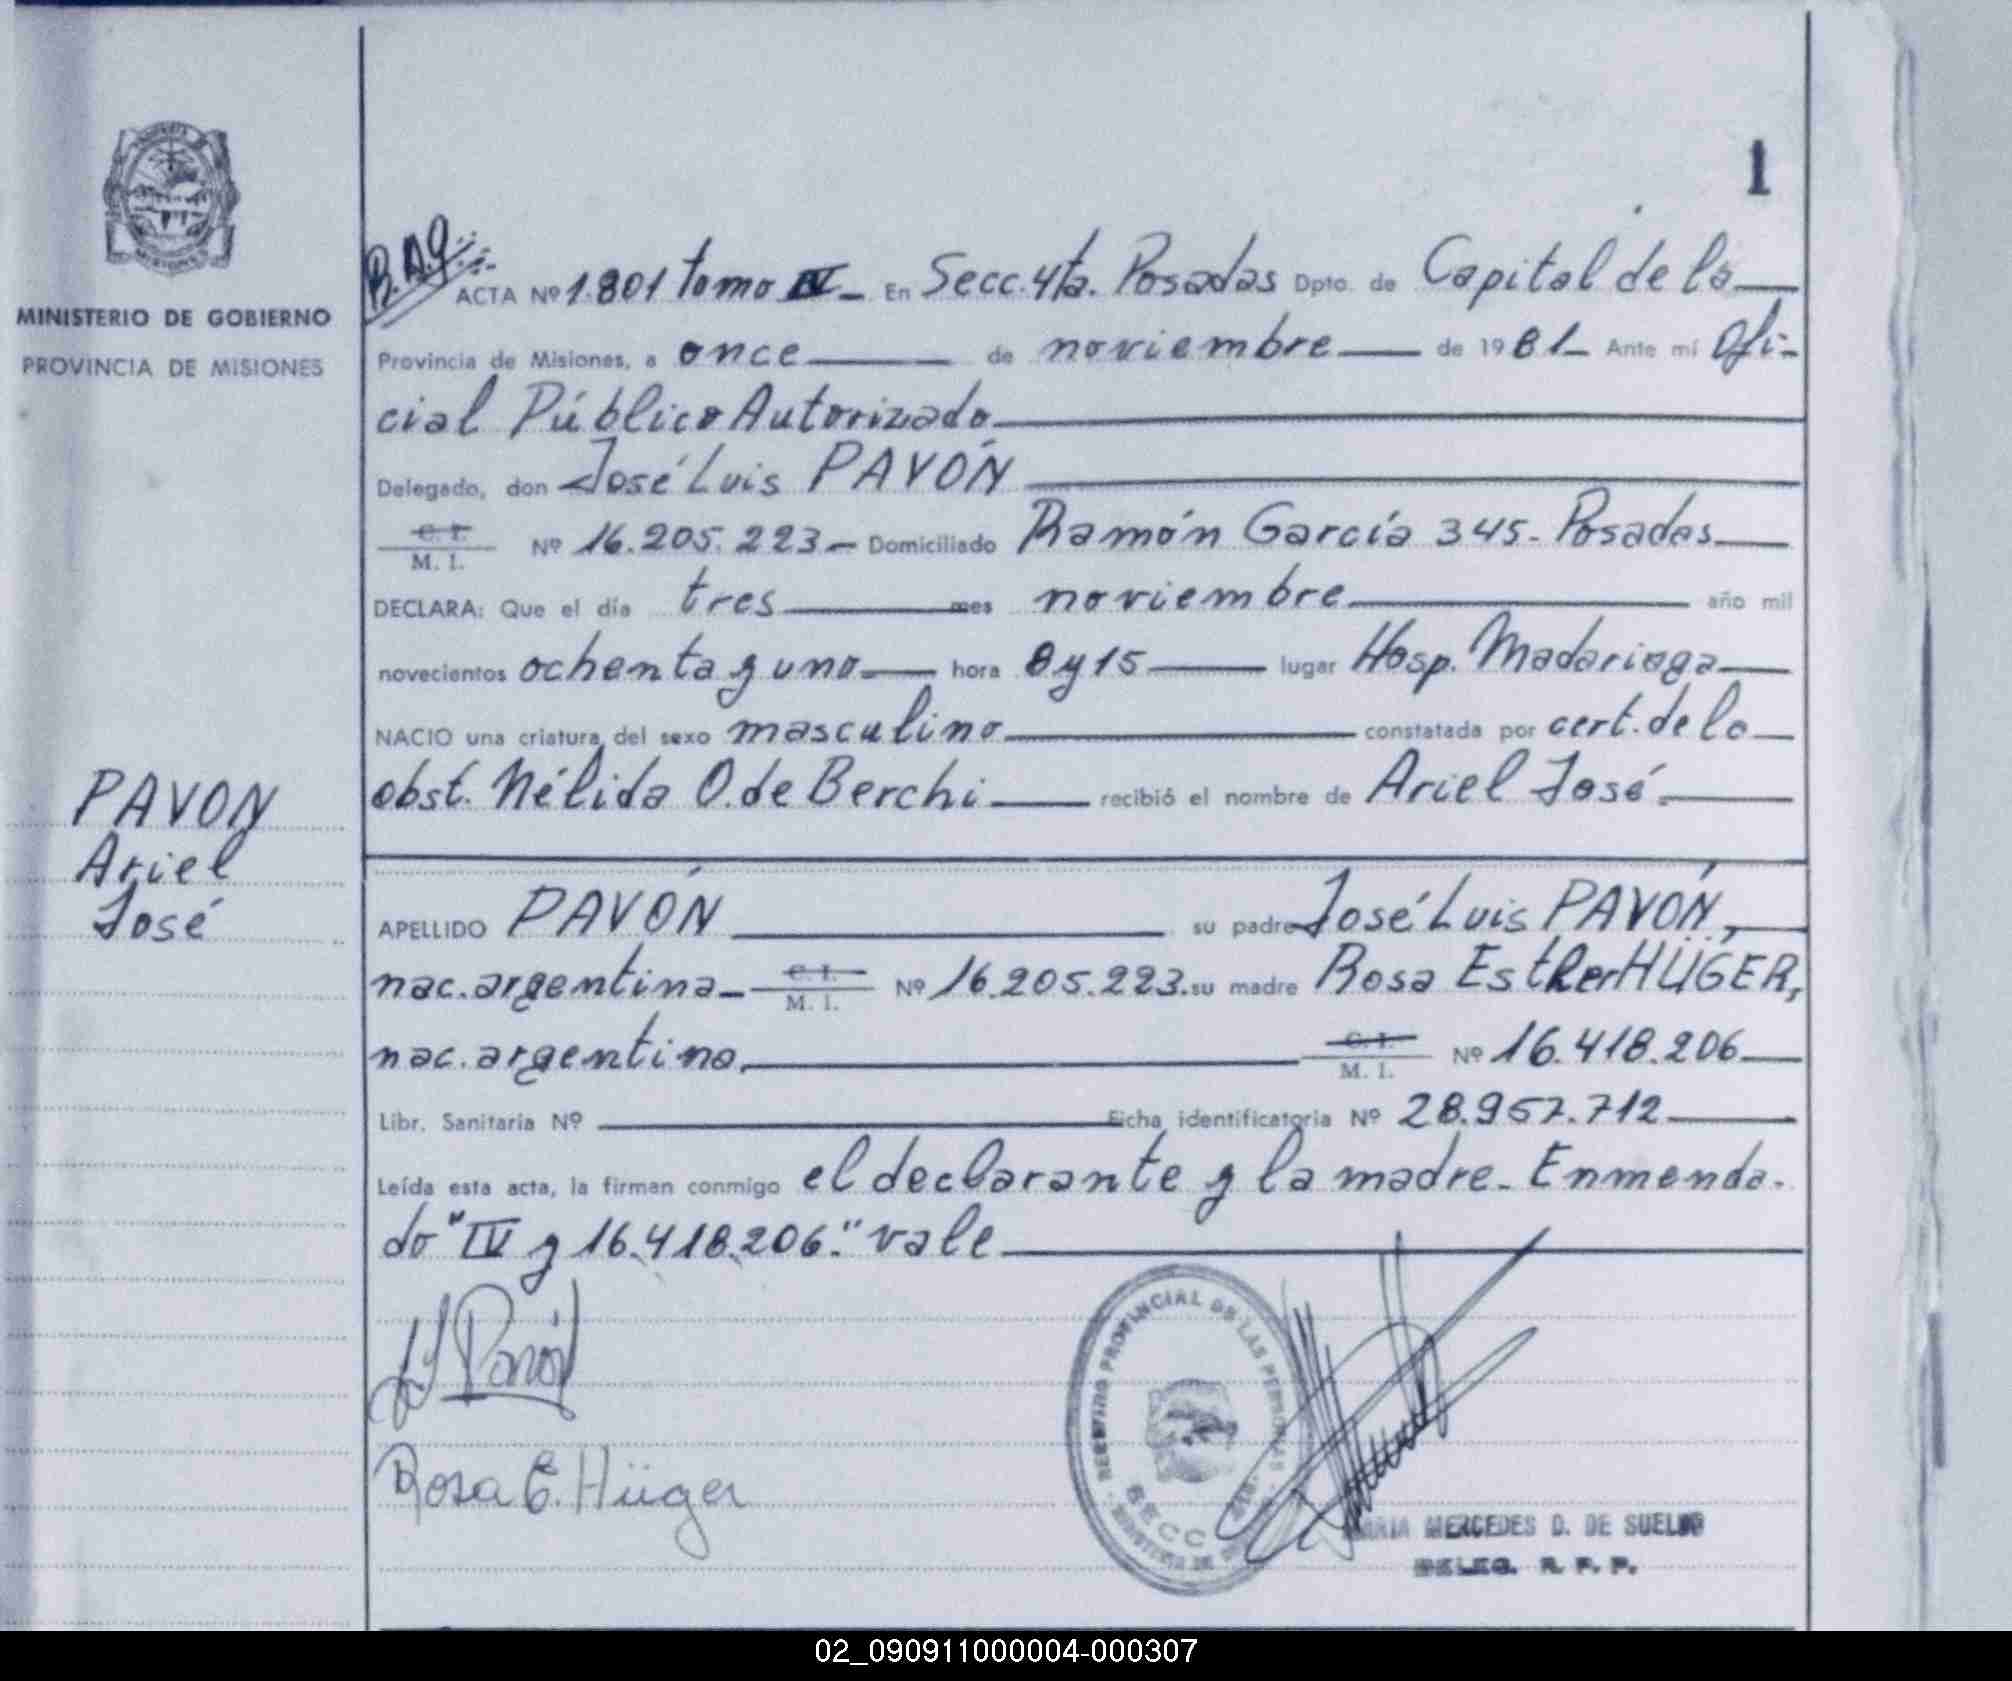 1
MINISTERIO DE GOBIERNO
PROVINCIA DE MISIONES
PAVON
Ariel
José
ACTA Nº 1.801 tomo IV - En Secc. 4ta. Posadas Dpto. de Capital de la
Provincia de Misiones, a once de noviembre de 1981 - Ante mí Ofi-
cial Público Autorizado
Delegado, don José Luis PAVÓN
C. I.
M. I. Nº 16.205.223 - Domiciliado Ramón García 345 - Posadas
DECLARA: Que el día tres mes noviembre año mil
novecientos ochenta y uno hora 8 y 15 lugar Hosp. Madariaga
NACIO una criatura del sexo masculino constatada por cert. de la
obst. Nélida O. de Berchi recibió el nombre de Ariel José.
APELLIDO PAVÓN su padre José Luis PAVÓN,
nac. argentina - C. I. M. I. Nº 16.205.223. su madre Rosa Esther HÜGER,
nac. argentina, C. I. M. I. Nº 16.418.206
Libr. Sanitaria Nº Ficha identificatoria Nº 28.957.712
Leída esta acta, la firman conmigo el declarante y la madre - Enmenda-
do "IV y 16.418.206." vale
Pavón
Rosa E. Hüger
REGISTRO PROVINCIAL DE LAS PERSONAS
SECC
MARIA MERCEDES D. DE
DELEG. R. P. P.
02_090911000004-000307